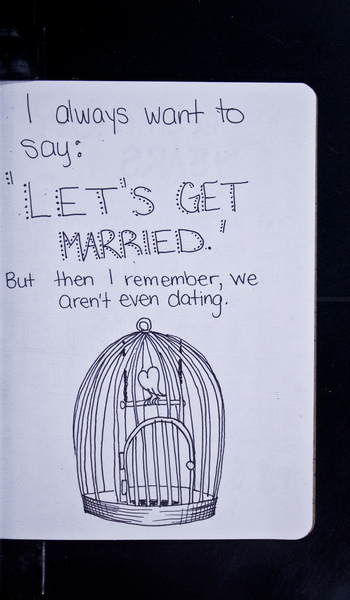 I always want to
say:
"LET'S GET
MARRIED."
But then I remember, we
aren't even dating.